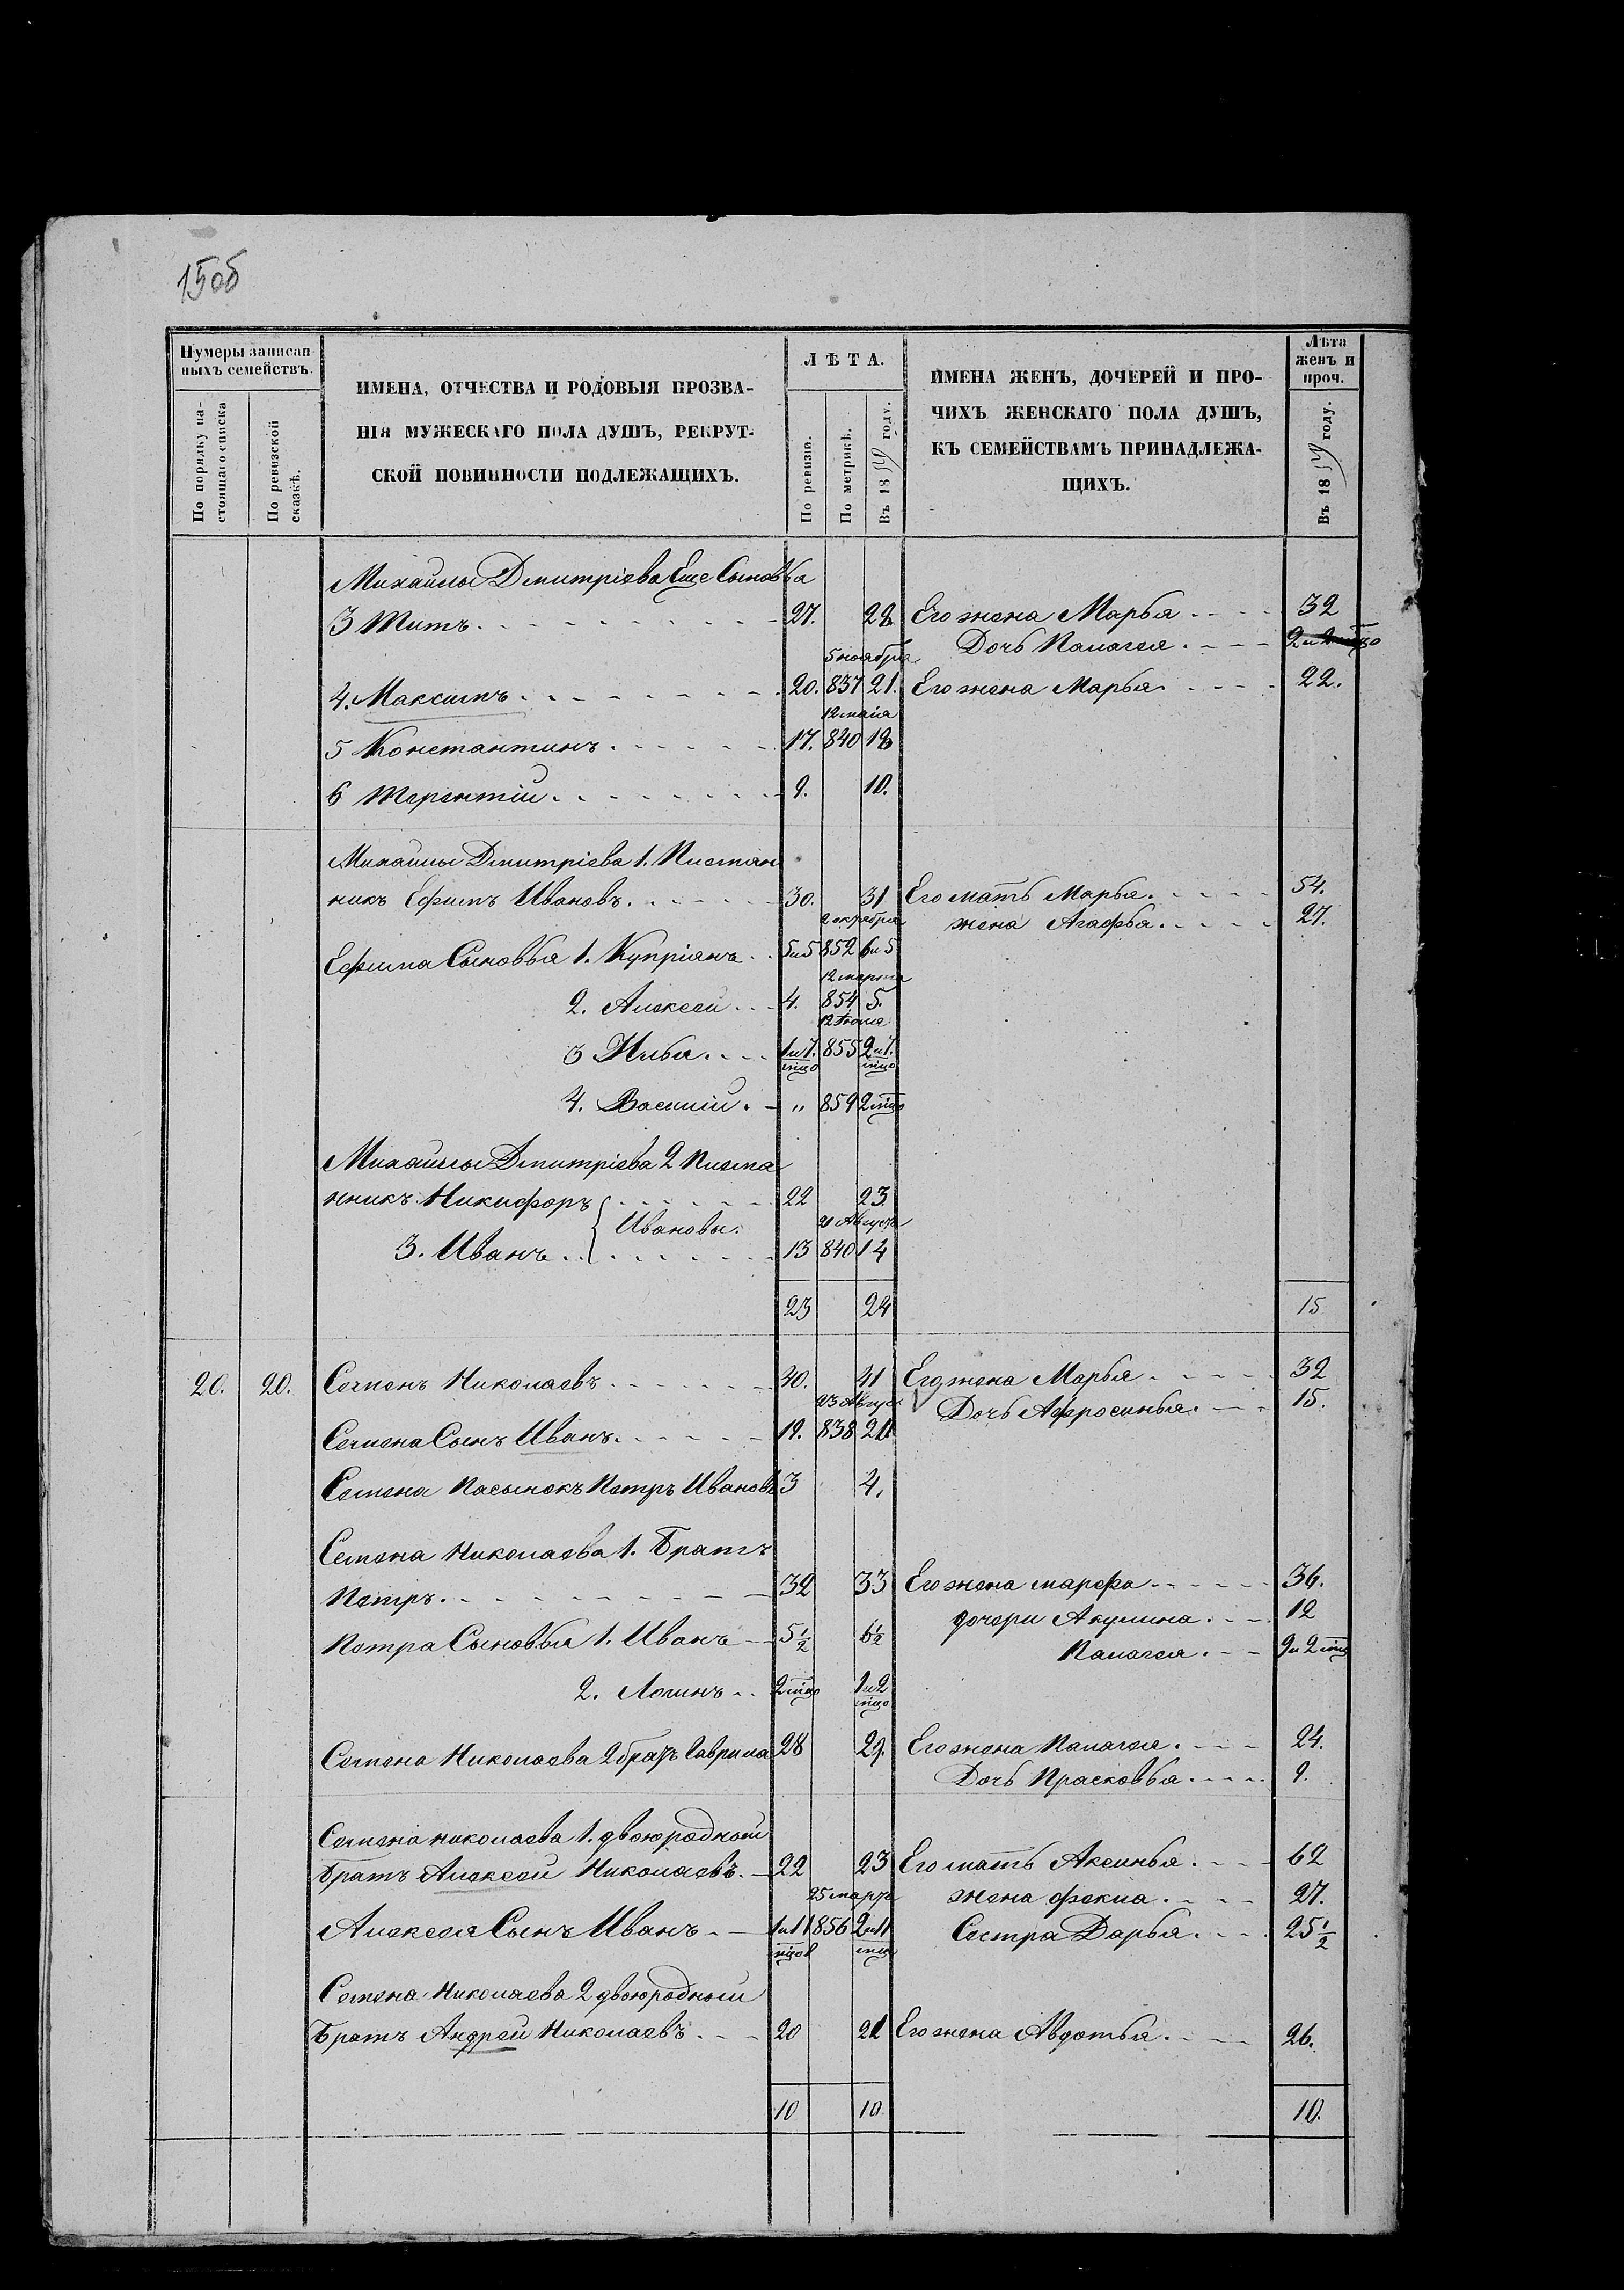 15об
Нумеры записан-
ныхъ семействъ.
По порядку на-
стоящаго списка
По ревизской
сказкѣ.
ИМЕНА, ОТЧЕСТВА И РОДОВЫЯ ПРОЗВА-
НІЯ МУЖЕСКАГО ПОЛА ДУШЪ, РЕКРУТ-
СКОЙ ПОВИННОСТИ ПОДЛЕЖАЩИХЪ.
ЛѢТА.
По ревизіи.
По метрикѣ.
Въ 18 59 году.
ИМЕНА ЖЕНЪ, ДОЧЕРЕЙ И ПРО-
ЧИХЪ ЖЕНСКАГО ПОЛА ДУШЪ,
КЪ СЕМЕЙСТВАМЪ ПРИНАДЛЕЖА-
ЩИХЪ.
Лѣта
женъ и
проч.
Въ 18 59 году.
Михайлы Дмитріева Еще Сыновья
3 Титъ 27. 28 Его жена Марья 32
Дочь Палагея 2 и 2 мцо
5 ноября
4. Максимъ 20. 837 21. Его жена Марья 22.
12 маія
5 Константинъ 17. 840 18
6 Терентій 9. 10.
Михайлы Дмитріева 1. Племян
никъ Ефимъ Ивановъ 30. 31 Его мать Марья 54.
2 октября жена Агафья 27.
Ефима Сыновья 1. Купріянъ 5 и 5 852 6 и 5
12 марта
2. Алексей 4. 854 5.
12 Іюля
3 Илья 1 и 7. мцо 855 2 и 7. мцо
4. Василій " 859 2 мцо
Михайлы Дмитріева 2 Племя
нникъ Никифоръ 22 23
Ивановы. 21 Августа
3. Иванъ 13 840 14
23 24 15
20. 20. Семенъ Николаевъ 40. 41 Его жена Марья 32
23 Август Дочь Афросинья 15.
Семена Сынъ Иванъ 19. 838 20
Семена Пасынокъ Петръ Ивановъ 3 4.
Семена Николаева 1. Братъ
Петръ 32 33 Его жена марфа 36.
дочери Акулина 12
Петра Сыновья 1. Иванъ 5 1/2 6 1/2
Палагея 9 и 2 мцо
2. Логинъ 2 мцо 1 и 2 мцо
Семена Николаева 2 братъ Гаврила 28 29. Его жена Палагея 24.
Дочь Прасковья 9.
Семена николаева 1. двоюродный
Братъ Алексей Николаевъ 22 23 Его мать Аксинья 62
25 марта жена фекла 27.
Алексея Сынъ Иванъ 1 и 11 мцов 856 2 и 11 мцо Сестра Дарья 25 1/2
Семена Николаева 2 двоюродный
Братъ Андрей Николаевъ 20 21 Его жена Авдотья 26.
10 10 10.